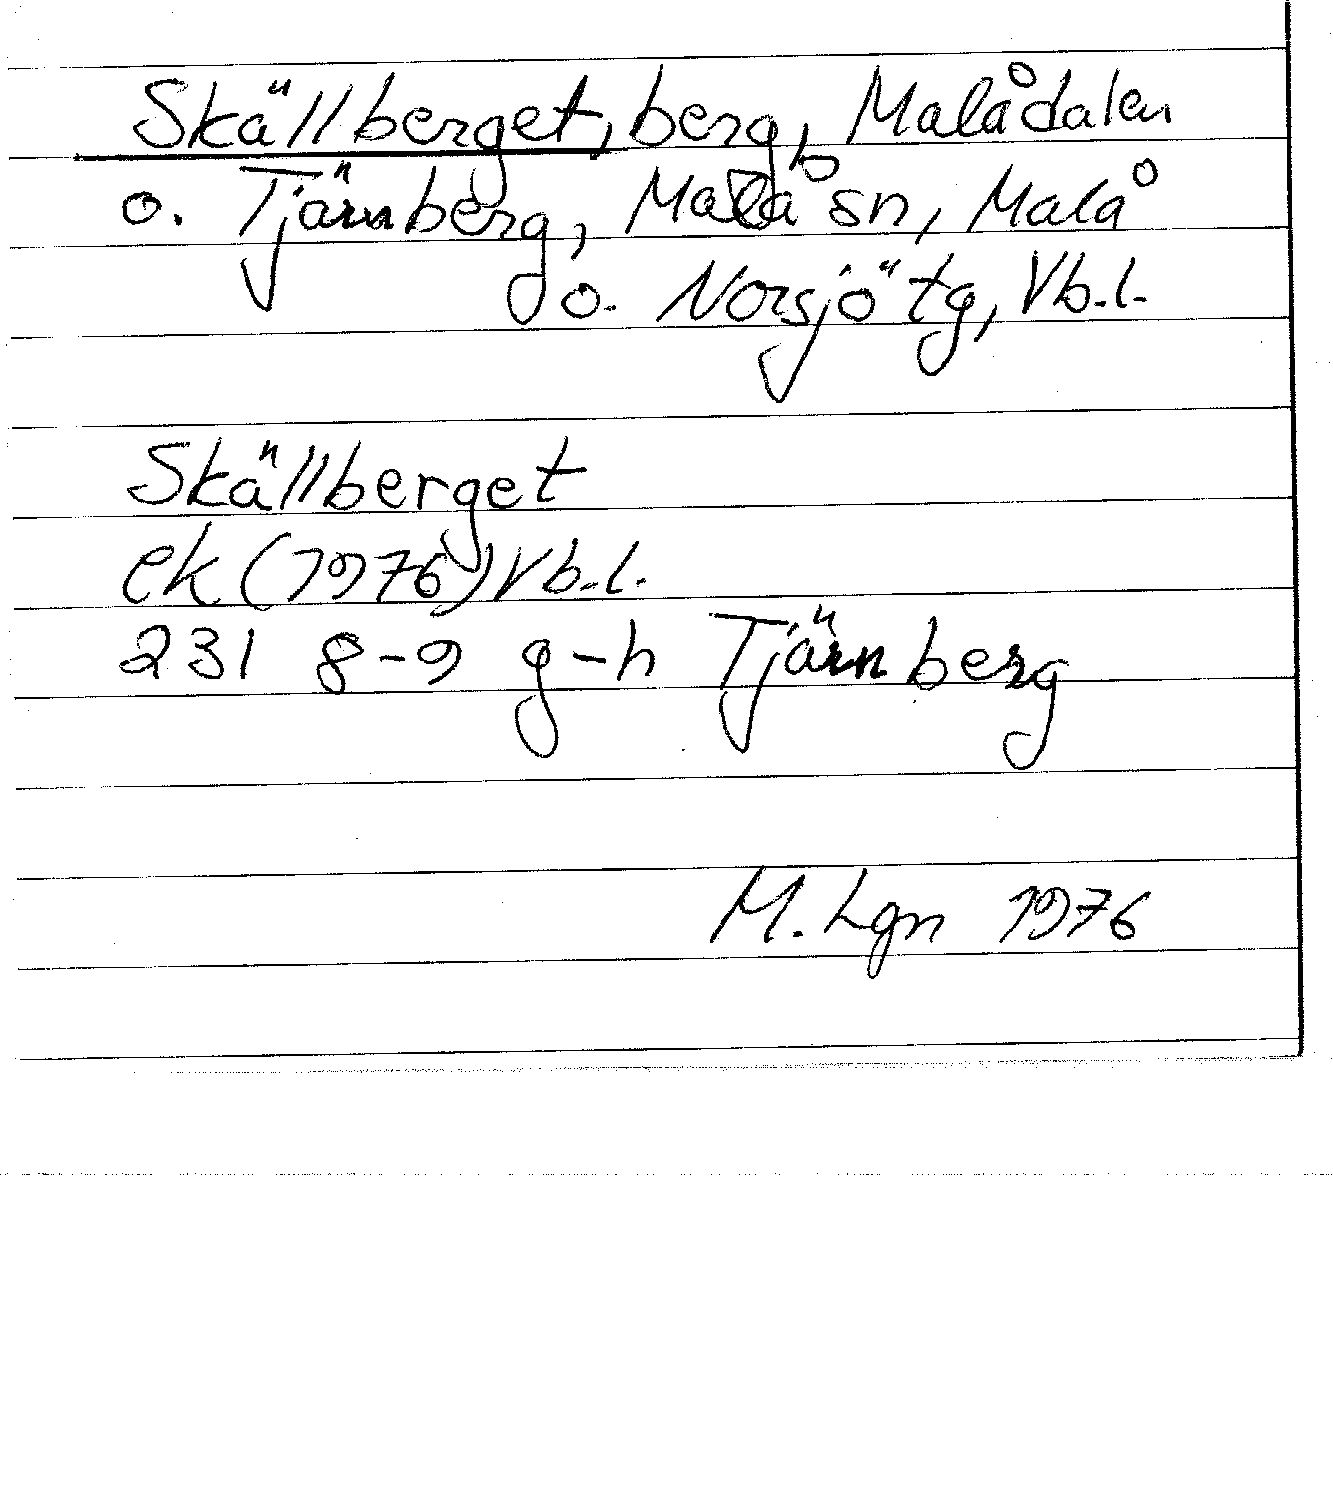 Skällberget, berg, Malådalen
o. Tjärnberg, Malå sn, Malå
o. Norsjö tg, Vb.l.
Skällberget
ek (1976) Vb.l.
231 8-9 g-h Tjärnberg
M. Lgn 1976